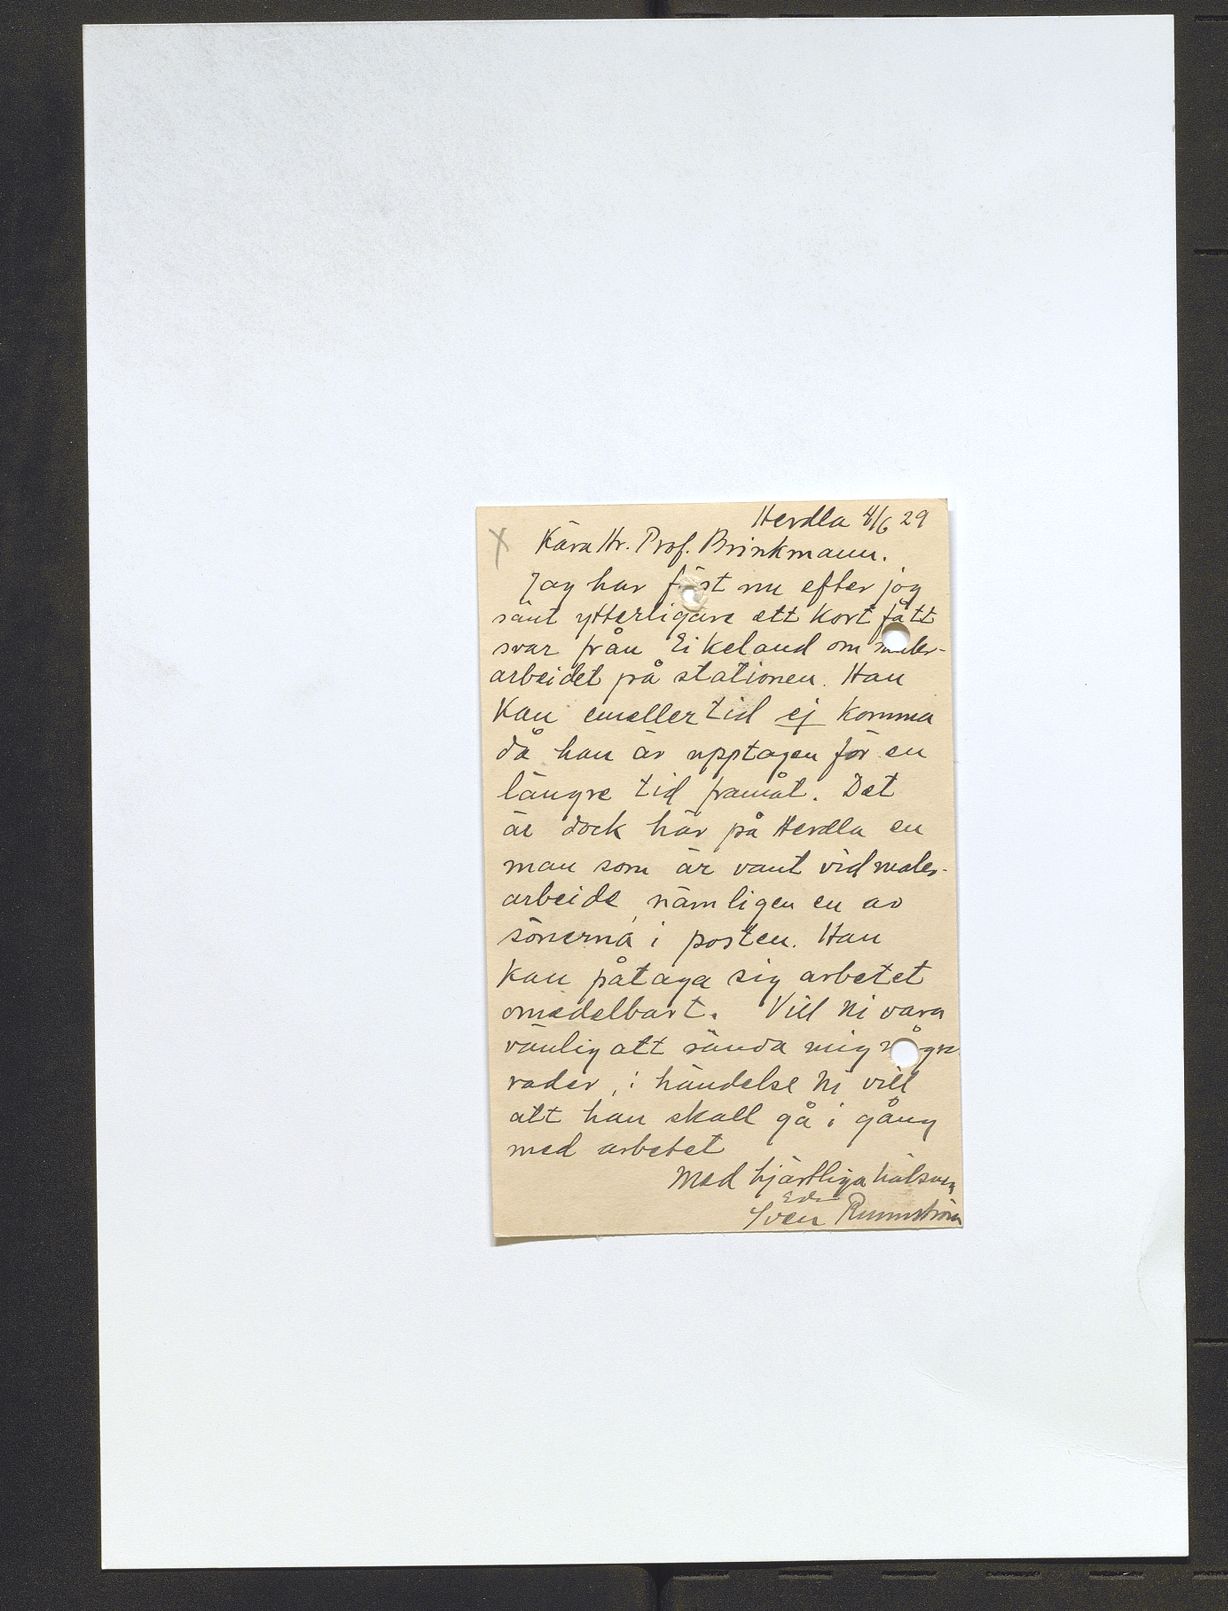 Herdla 4/6 29
X Kära Hr. Prof. Brinkmann.
Jag har först nu efter jag
sänt ytterligare ett kort fått
svar från Eikeland om maler-
arbeidet på stationen. Han
kan emellertid ej komma
då han är upptagen för en
längre tid framåt. Det
är dock här på Herdla en
man som är vant vid maler-
arbeide, nämligen en av
sönerna i posten. Han
kan påtaga sig arbetet
omedelbart. Vill Ni vara
vänlig att sända mig några
rader, i händelse Ni vill
att han skall gå i gång
med arbetet
Med hjärtliga hälsnin
Eder
Sven Runnström